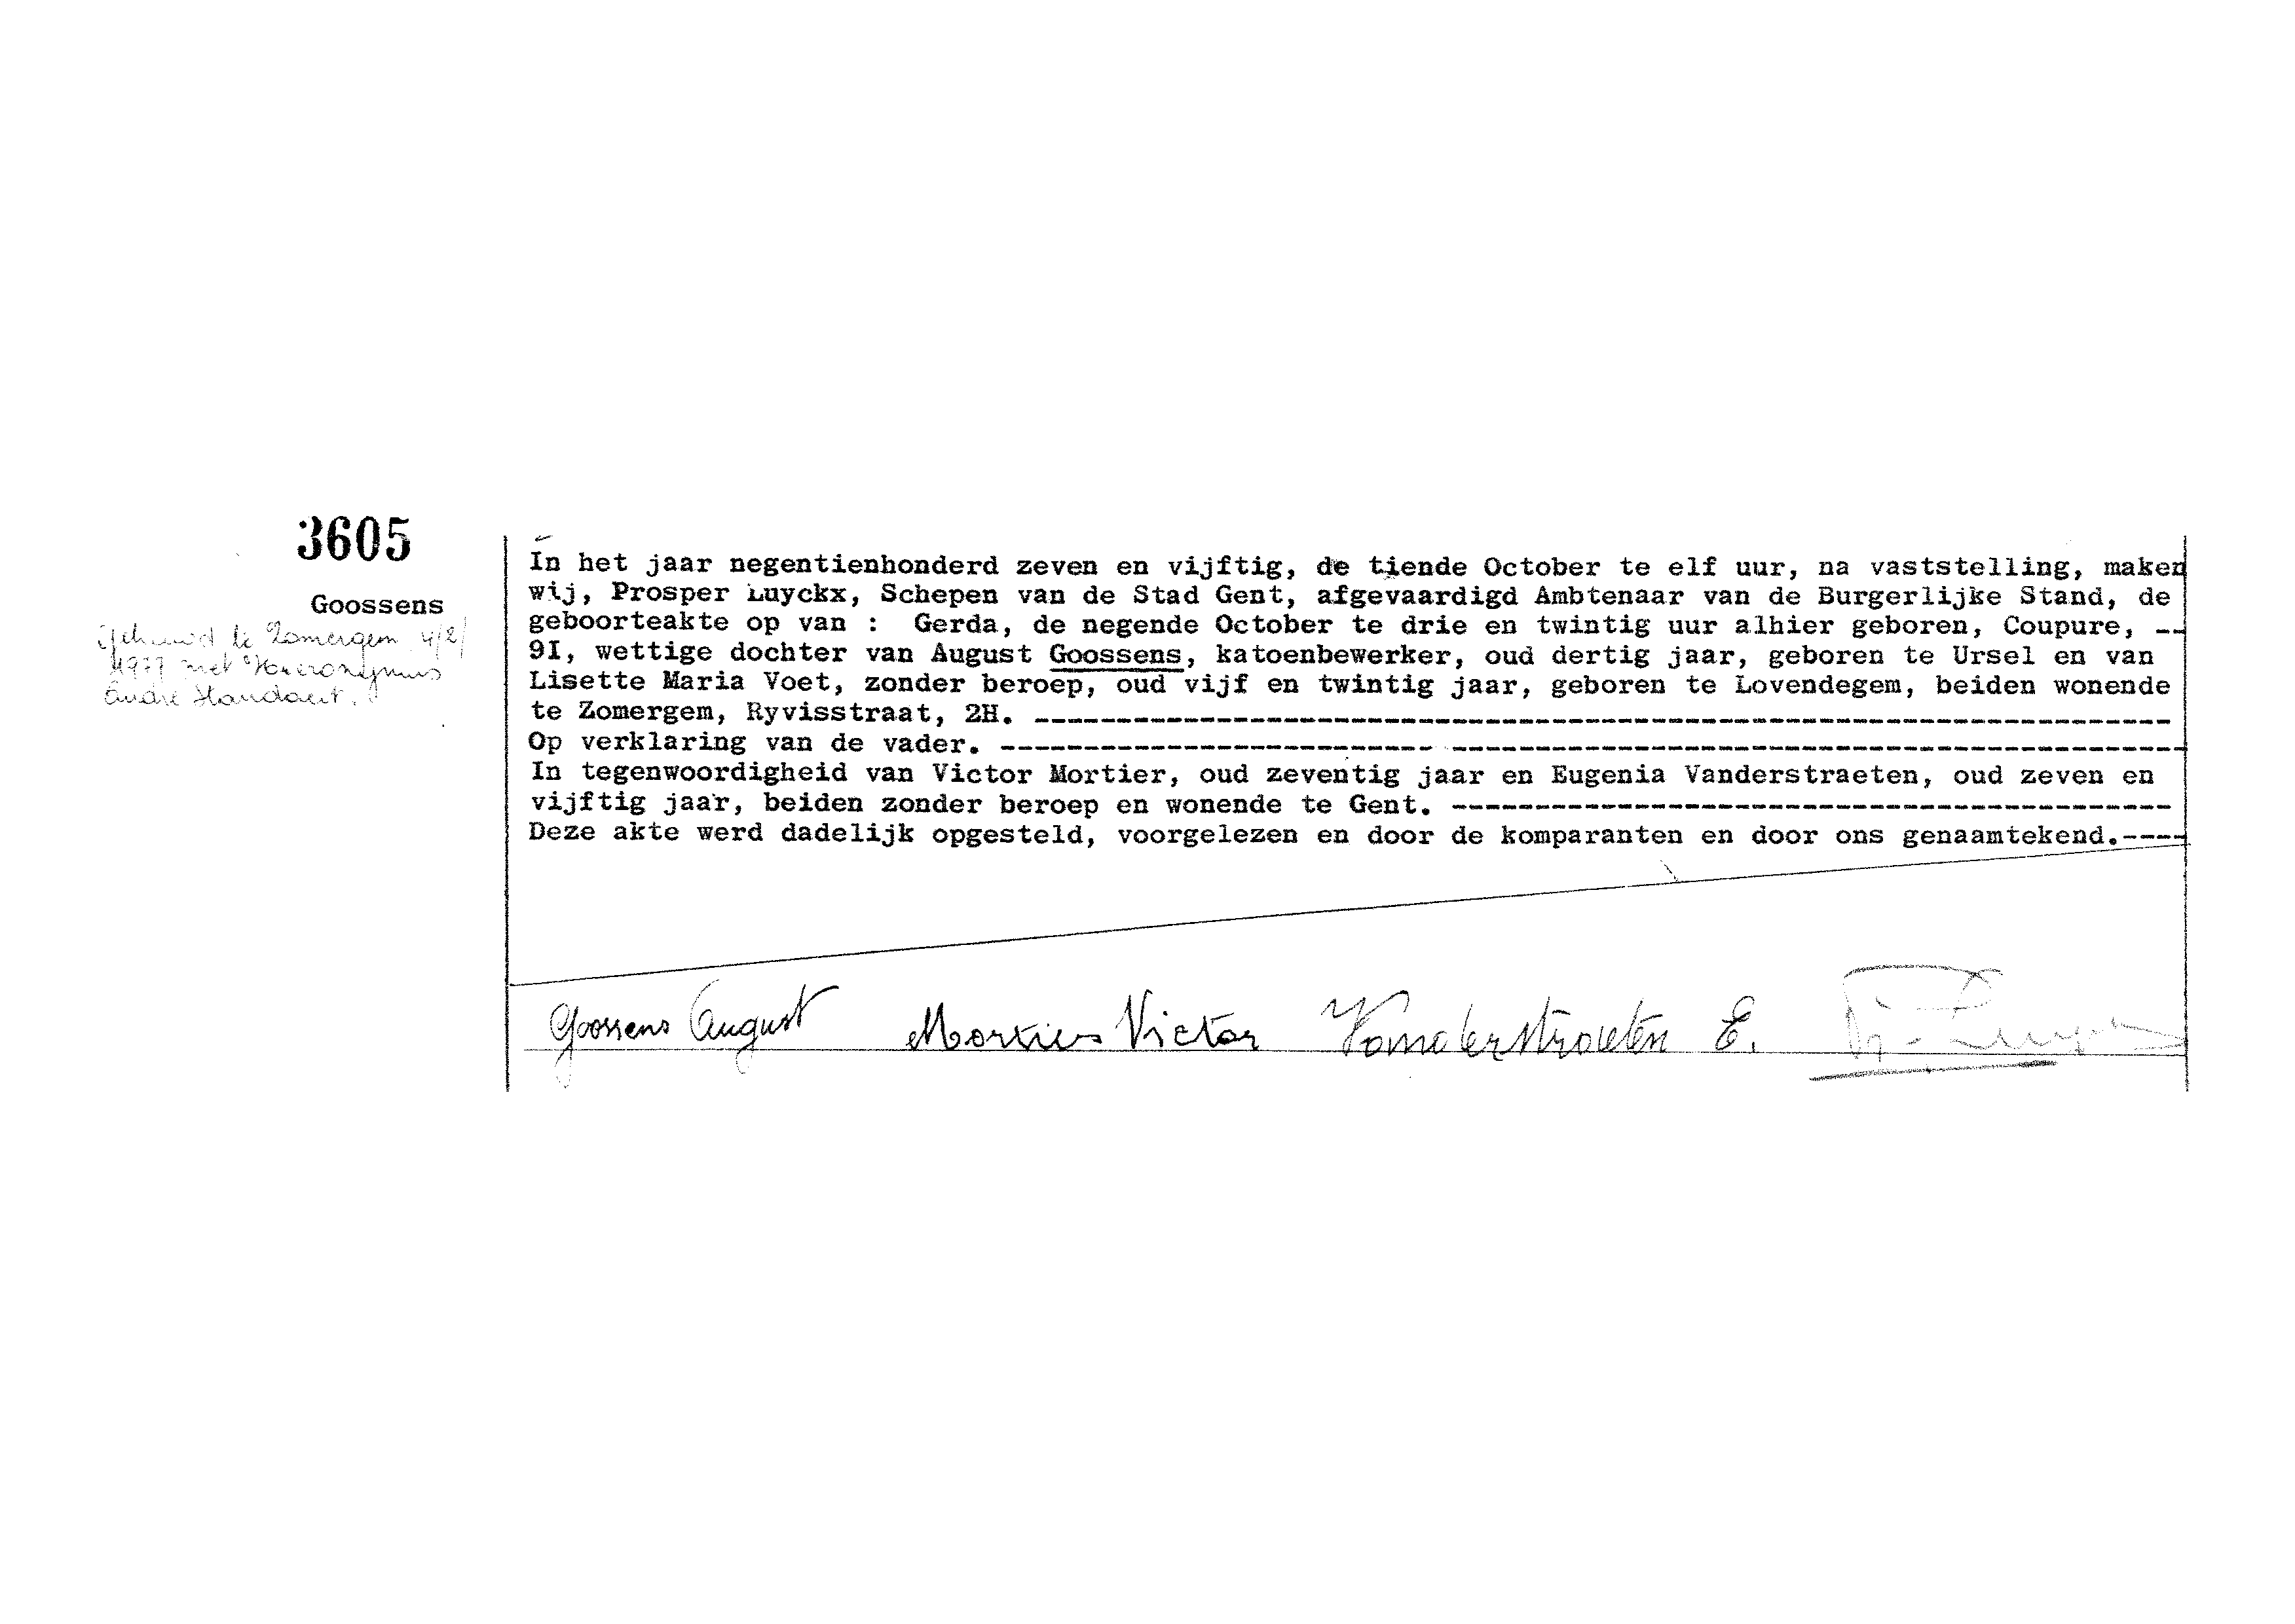 3605
Goossens
Gehuwd te Zomergem 4/2/
1977 met Hieronymus
André Standaert.
In het jaar negentienhonderd zeven en vijftig, de tiende October te elf uur, na vaststelling, maken
wij, Prosper Luyckx, Schepen van de Stad Gent, afgevaardigd Ambtenaar van de Burgerlijke Stand, de
geboorteakte op van : Gerda, de negende October te drie en twintig uur alhier geboren, Coupure, --
9I, wettige dochter van August Goossens, katoenbewerker, oud dertig jaar, geboren te Ursel en van
Lisette Maria Voet, zonder beroep, oud vijf en twintig jaar, geboren te Lovendegem, beiden wonende
te Zomergem, Ryvisstraat, 2H. ---
Op verklaring van de vader. ---
In tegenwoordigheid van Victor Mortier, oud zeventig jaar en Eugenia Vanderstraeten, oud zeven en
vijftig jaar, beiden zonder beroep en wonende te Gent. ---
Deze akte werd dadelijk opgesteld, voorgelezen en door de komparanten en door ons genaamtekend.----
Goossens August Mortier Victor Vanderstraeten E.